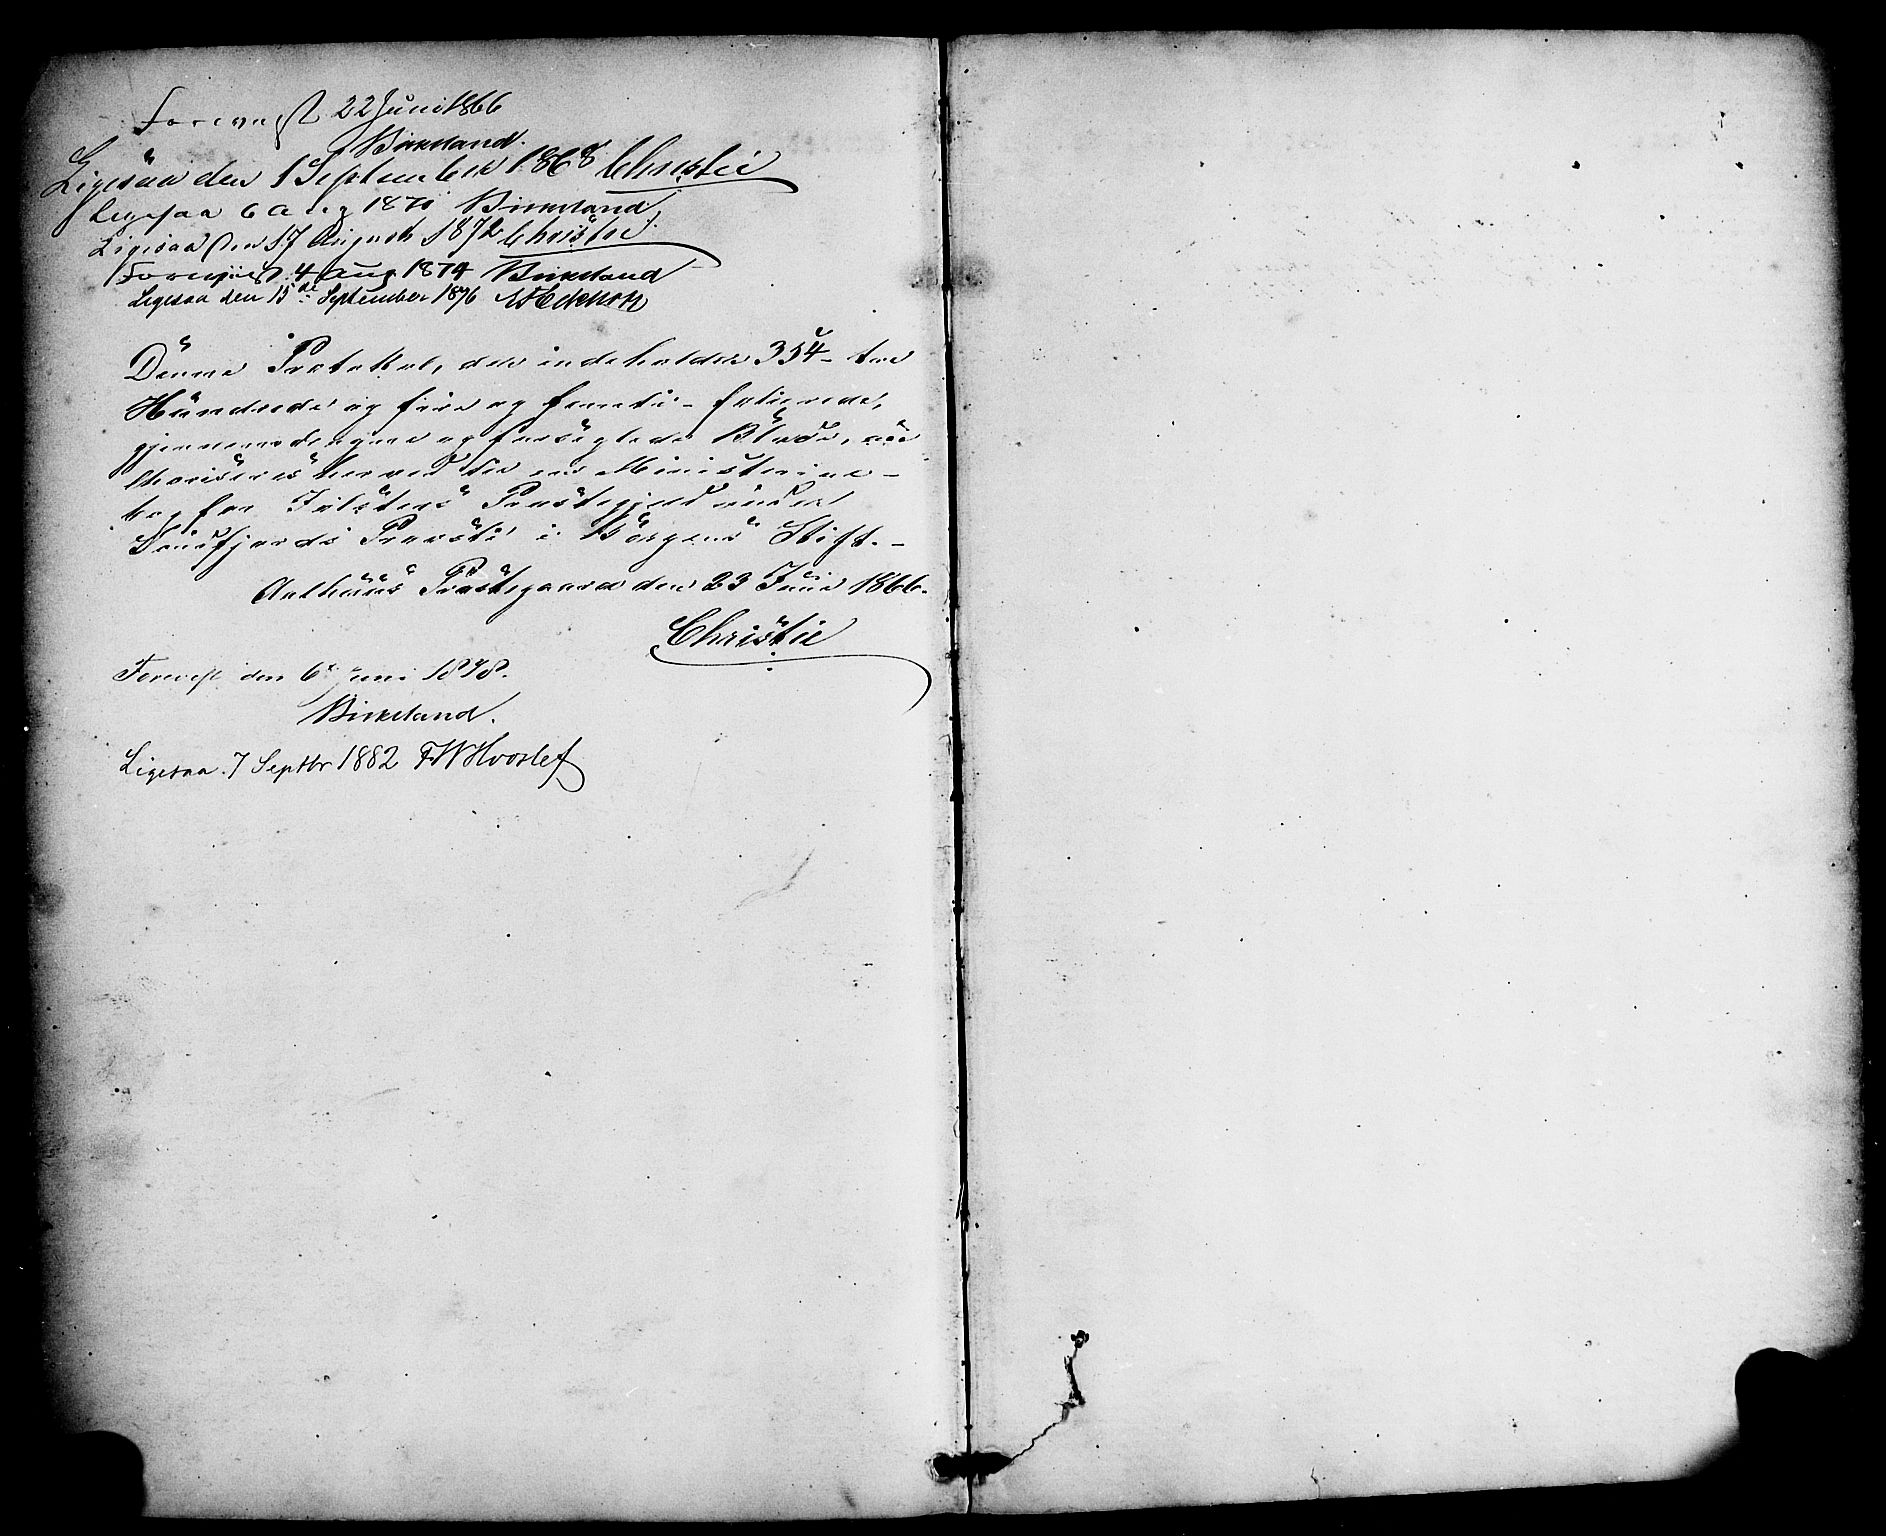 Forevist 22 Juni 1866
Birkeland.
Ligesaa den 1 September 1868 Christie
Ligesaa 6 Aug 1870 Birkeland
Ligesaa den 17 August 1872 Christie.
Forevist 4 Aug 1874 Birkeland
Ligesaa den 15de September 1876
Denne Protokol, der indeholder 354 - tre
Hundrede og fire og femti - folierede,
gjennemdragne og forseglede Blade, au
thoriseres herved til en Ministerial-
bog for Jølsters Præstegjeld under
Søndfjords Provsti i Bergens Stift. -
Præstegaard den 23 Juni 1866.
Christie
Forevist den 6te Juni 1878.
Birkeland.
Ligesaa 7 Septbr 1882 FW Hvoslef